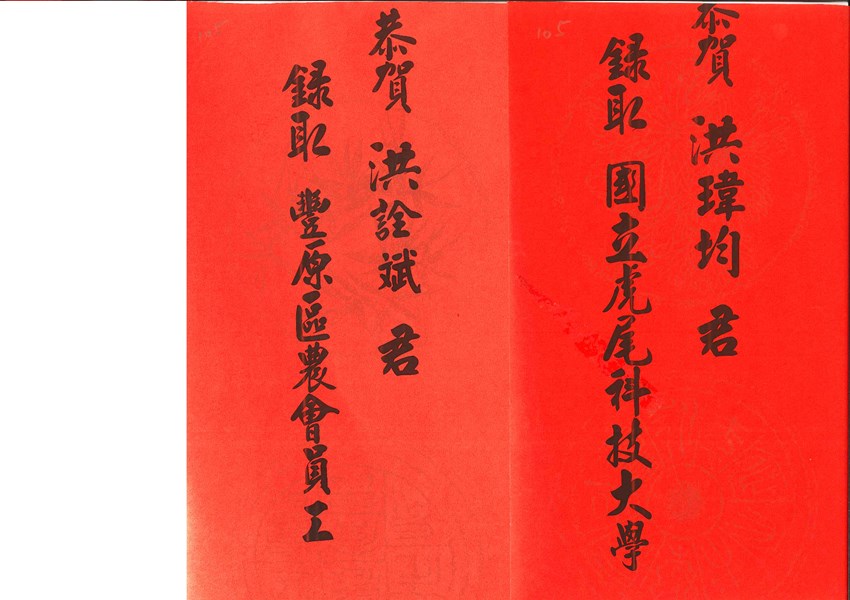 105
恭賀 洪瑋均 君
錄取 國立虎尾科技大學
105
恭賀 洪詮斌 君
錄取 豐原區農會員工